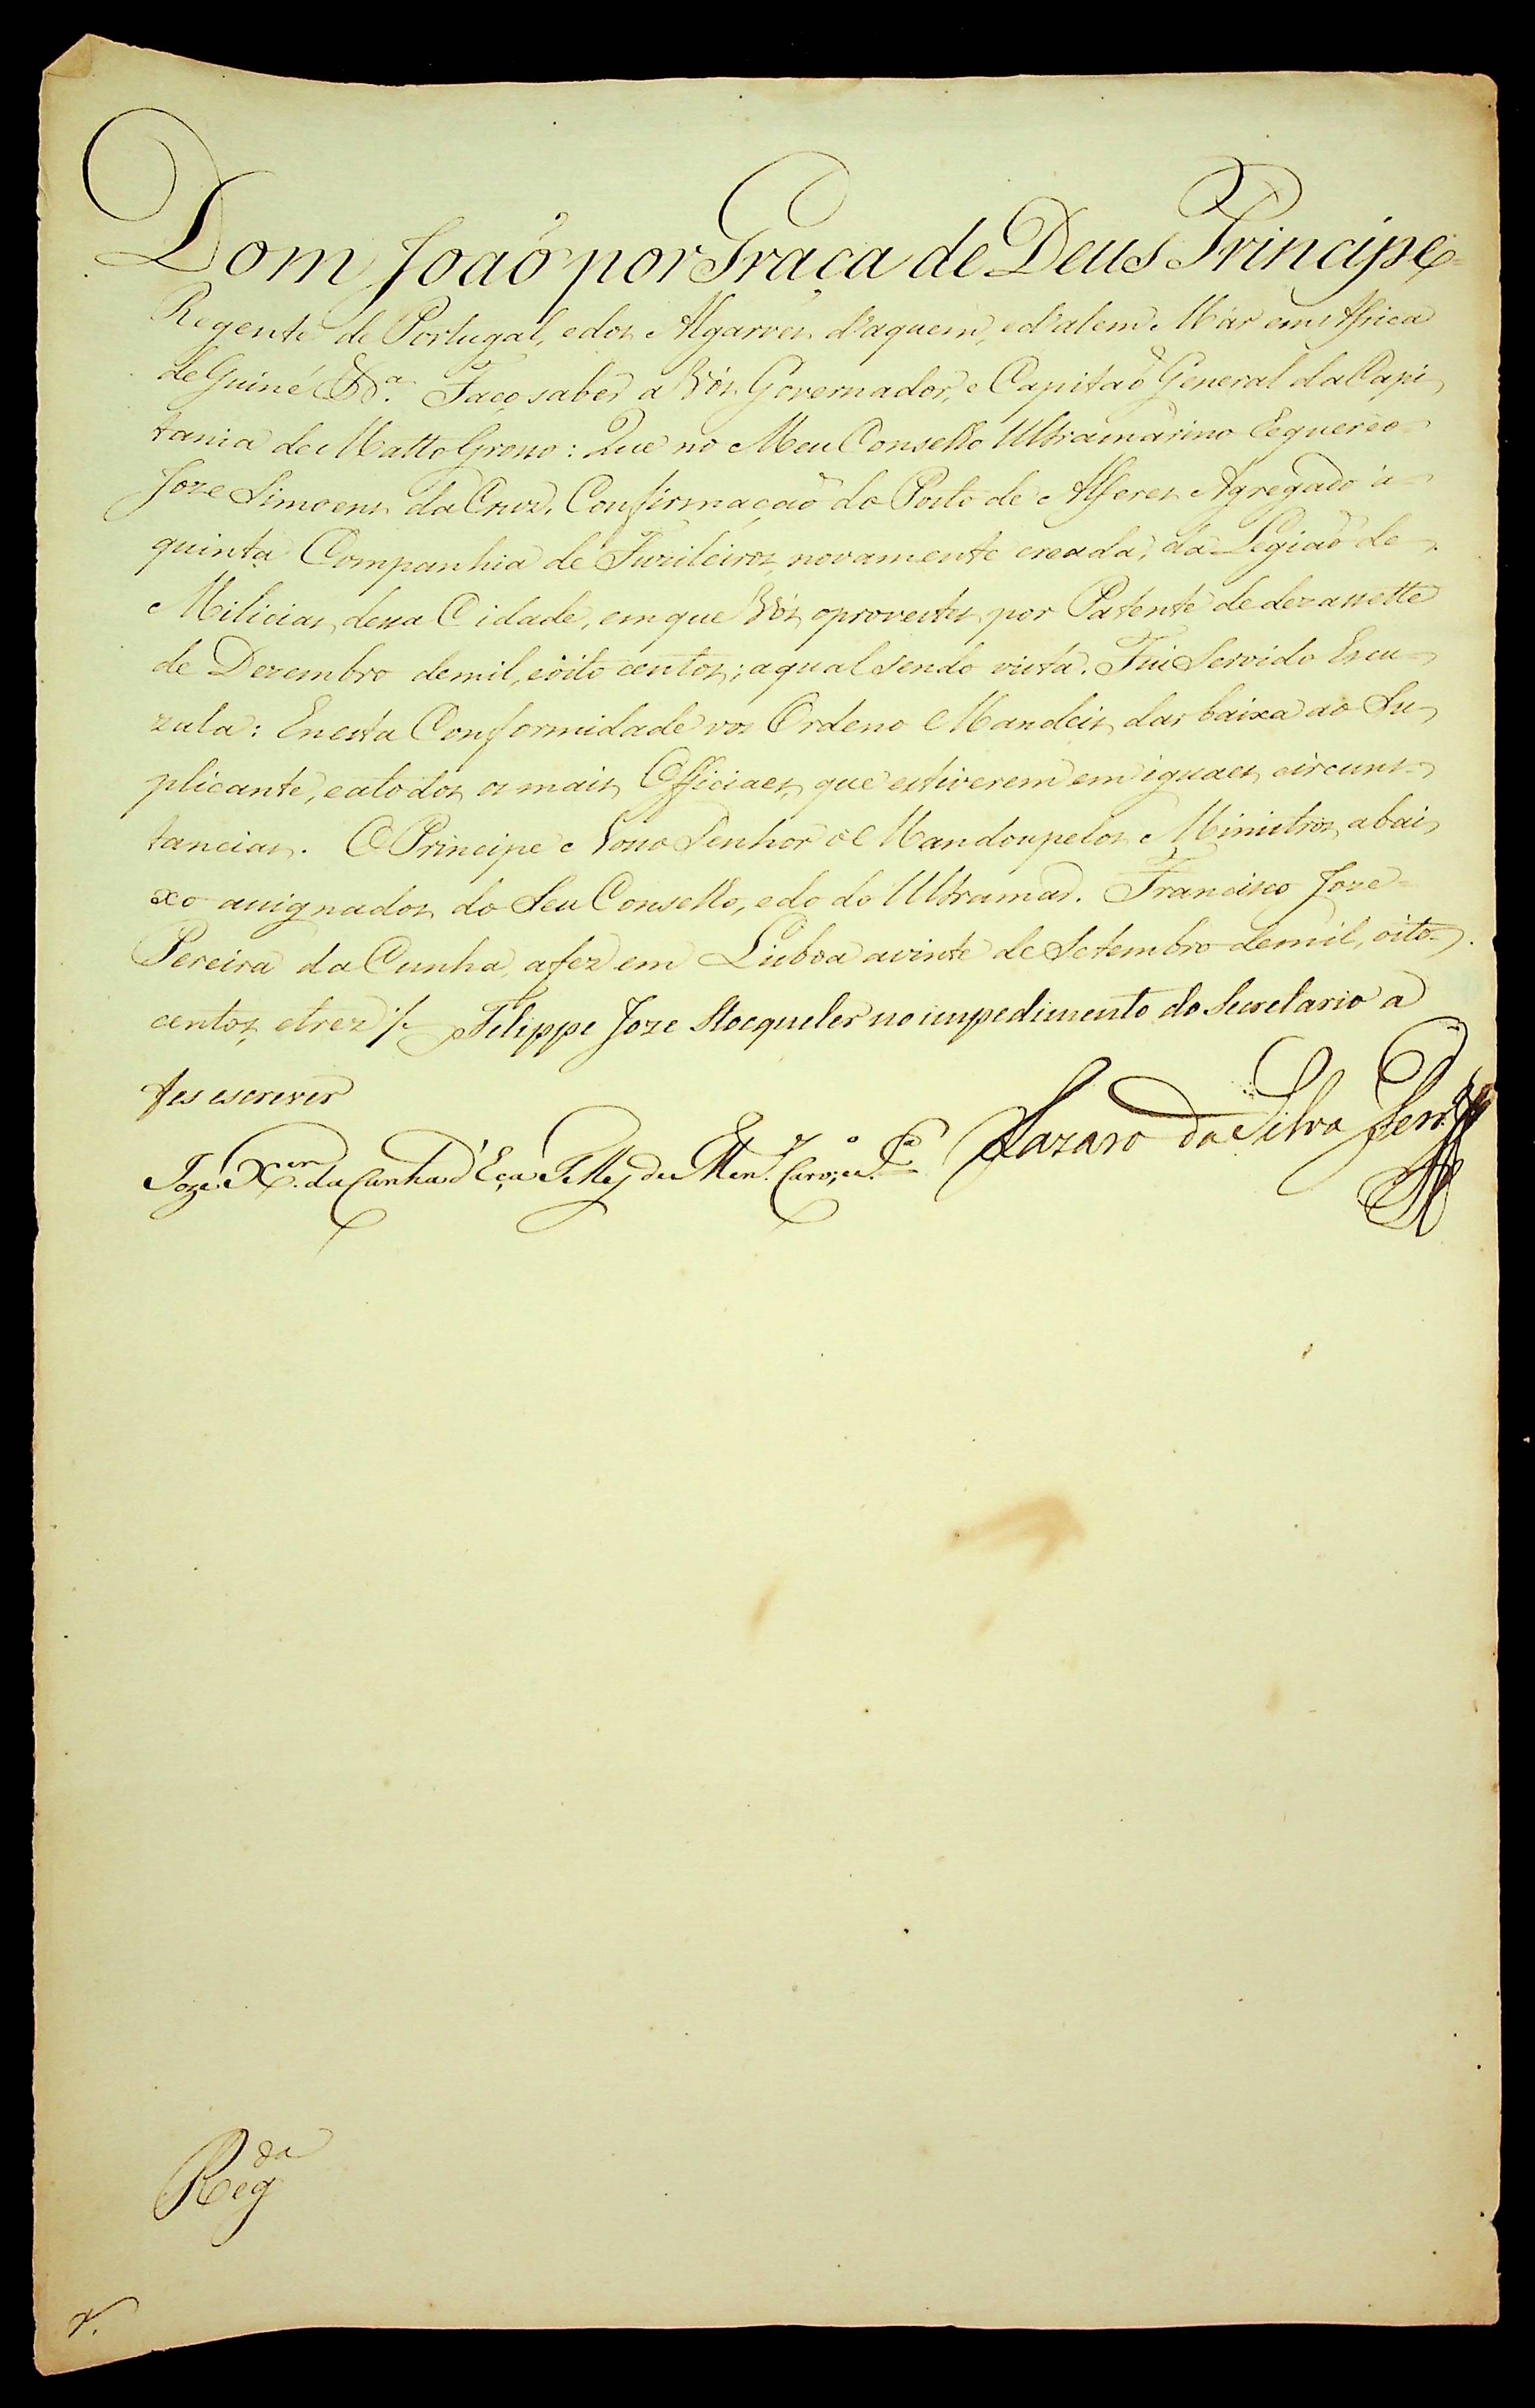 Dom Joaõ por Graça de Deus Principe
Regente de Portugal, e dos Algarves d'aquem, e d'alem Már em Africa
de Guiné &ª. Faço saber a Vós Governador, e Capitaõ General da Capi
tania de Matto Grosso: Que no Meu Conselho Ultramarino Requereo
Joze Simoens da Cruz, Confirmaçaõ do Posto de Alferes Agregado á
quinta Companhia de Fuzileiros, novamente creada, da Legiaõ de
Milicias dessa Cidade, em que Vós o provestes por Patente de dezassette
de Dezembro de mil, e oito centos; a qual sendo vista. Fui Servido Escu-
zala: E nesta Conformidade vos Ordeno Mandeis dar baixa ao Su
plicante, e a todos os mais Officiaes, que estiverem em iguaes circuns-
tancias. O Principe Nosso Senhor o Mandou pelos Ministros abai
xo assignados do Seu Conselho, e do do Ultramar. Francisco Joze
Pereira da Cunha a fez em Lisboa a vinte de Setembro de mil, oito
centos e trez /. Filippe Joze Stocqueler no impedimento do Secretario a
fes escrever
Jozé Xer. da Cunha d'Eça Telles de Men.
Lazaro da Silva Ferrª
Regda